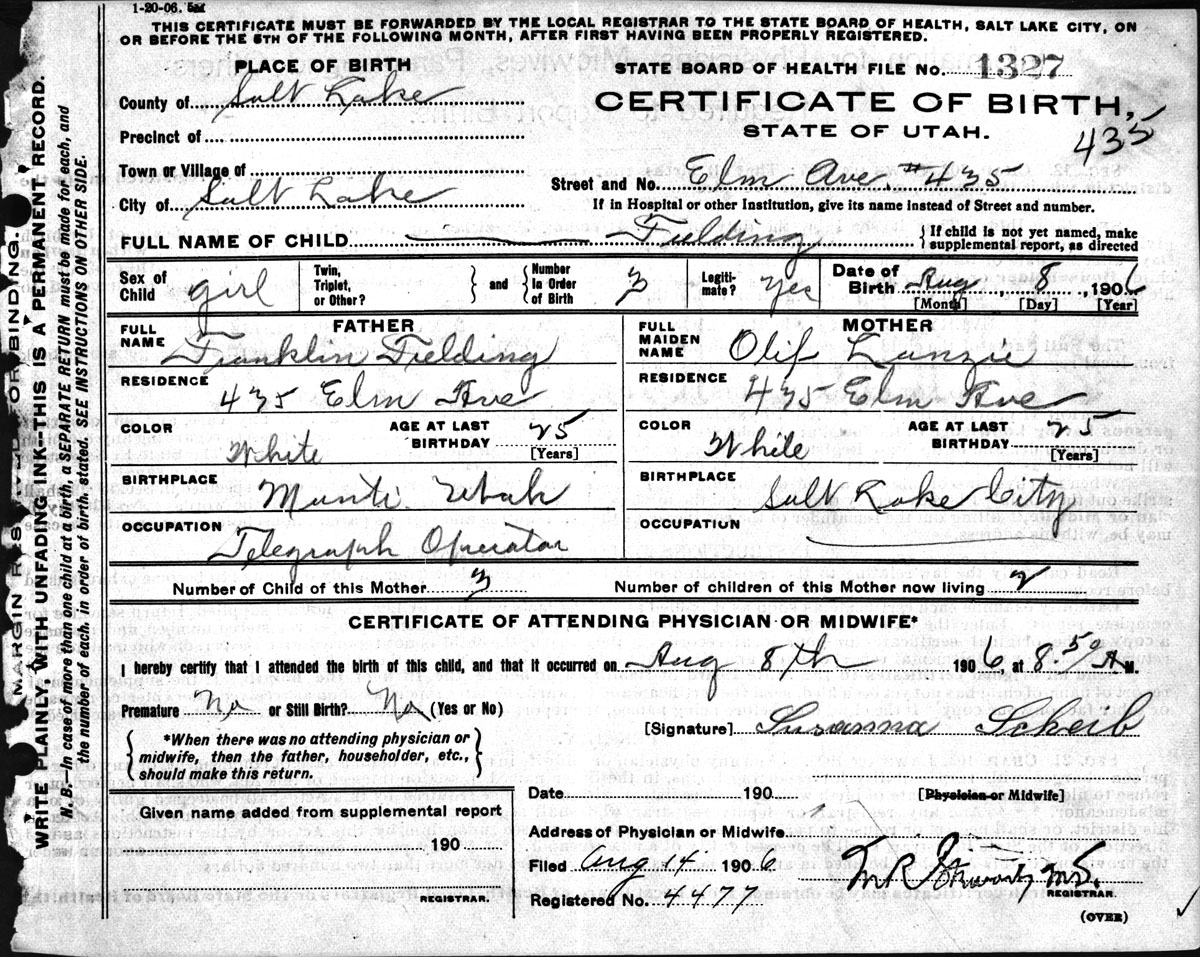 1-20-06. 5M
THIS CERTIFICATE MUST BE FORWARDED BY THE LOCAL REGISTRAR TO THE STATE BOARD OF HEALTH, SALT LAKE CITY, ON
OR BEFORE THE 5TH OF THE FOLLOWING MONTH, AFTER FIRST HAVING BEEN PROPERLY REGISTERED.
PLACE OF BIRTH
County of Salt Lake
Precinct of
Town or Village of
City of Salt Lake
STATE BOARD OF HEALTH FILE No. 1327
CERTIFICATE OF BIRTH,
STATE OF UTAH.
435
Street and No. Elm Ave. #435
If in Hospital or other Institution, give its name instead of Street and number.
FULL NAME OF CHILD Fielding
If child is not yet named, make
supplemental report, as directed
Sex of Child girl
Twin, Triplet, or Other?
and
Number In Order of Birth 3
Legitimate? Yes
Date of Birth Aug 8, 1906
[Month] [Day] [Year]
FATHER
FULL NAME Franklin Fielding
RESIDENCE 435 Elm Ave
COLOR White
AGE AT LAST BIRTHDAY 25
[Years]
BIRTHPLACE Manti Utah
OCCUPATION Telegraph Operator
MOTHER
FULL MAIDEN NAME Olif Lanzie
RESIDENCE 435 Elm Ave
COLOR White
AGE AT LAST BIRTHDAY 25
[Years]
BIRTHPLACE Salt Lake City
OCCUPATION
Number of Child of this Mother 3
Number of children of this Mother now living 2
CERTIFICATE OF ATTENDING PHYSICIAN OR MIDWIFE*
I hereby certify that I attended the birth of this child, and that it occurred on Aug 8th 1906 at 8.50 A M.
Premature No or Still Birth? No (Yes or No)
*When there was no attending physician or
midwife, then the father, householder, etc.,
should make this return.
[Signature] Susanna Scheib
Date 190
[Physician or Midwife]
Given name added from supplemental report
190
REGISTRAR.
Address of Physician or Midwife
Filed Aug 14 1906
REGISTRAR.
Registered No. 4477
(OVER)
MARGIN RESERVED FOR BINDING.
WRITE PLAINLY WITH UNFADING INK-THIS IS A PERMANENT RECORD.
N. B.—In case of more than one child at a birth, a SEPARATE RETURN must be made for each, and
the number of each, in order of birth, stated. SEE INSTRUCTIONS ON OTHER SIDE.